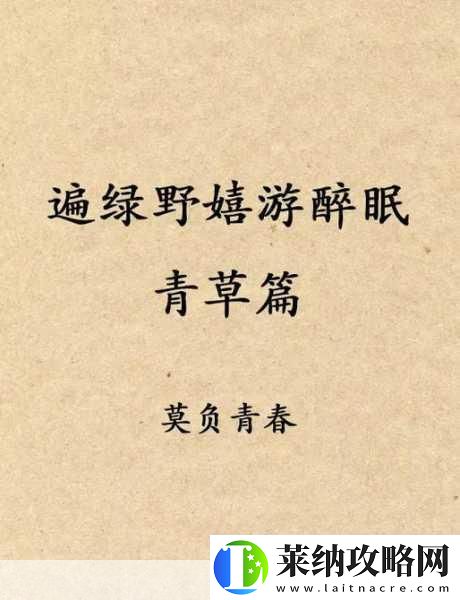 遍绿野嬉游醉眠
青草篇
莫负青春
莱纳攻略网
www.laitnacre.com